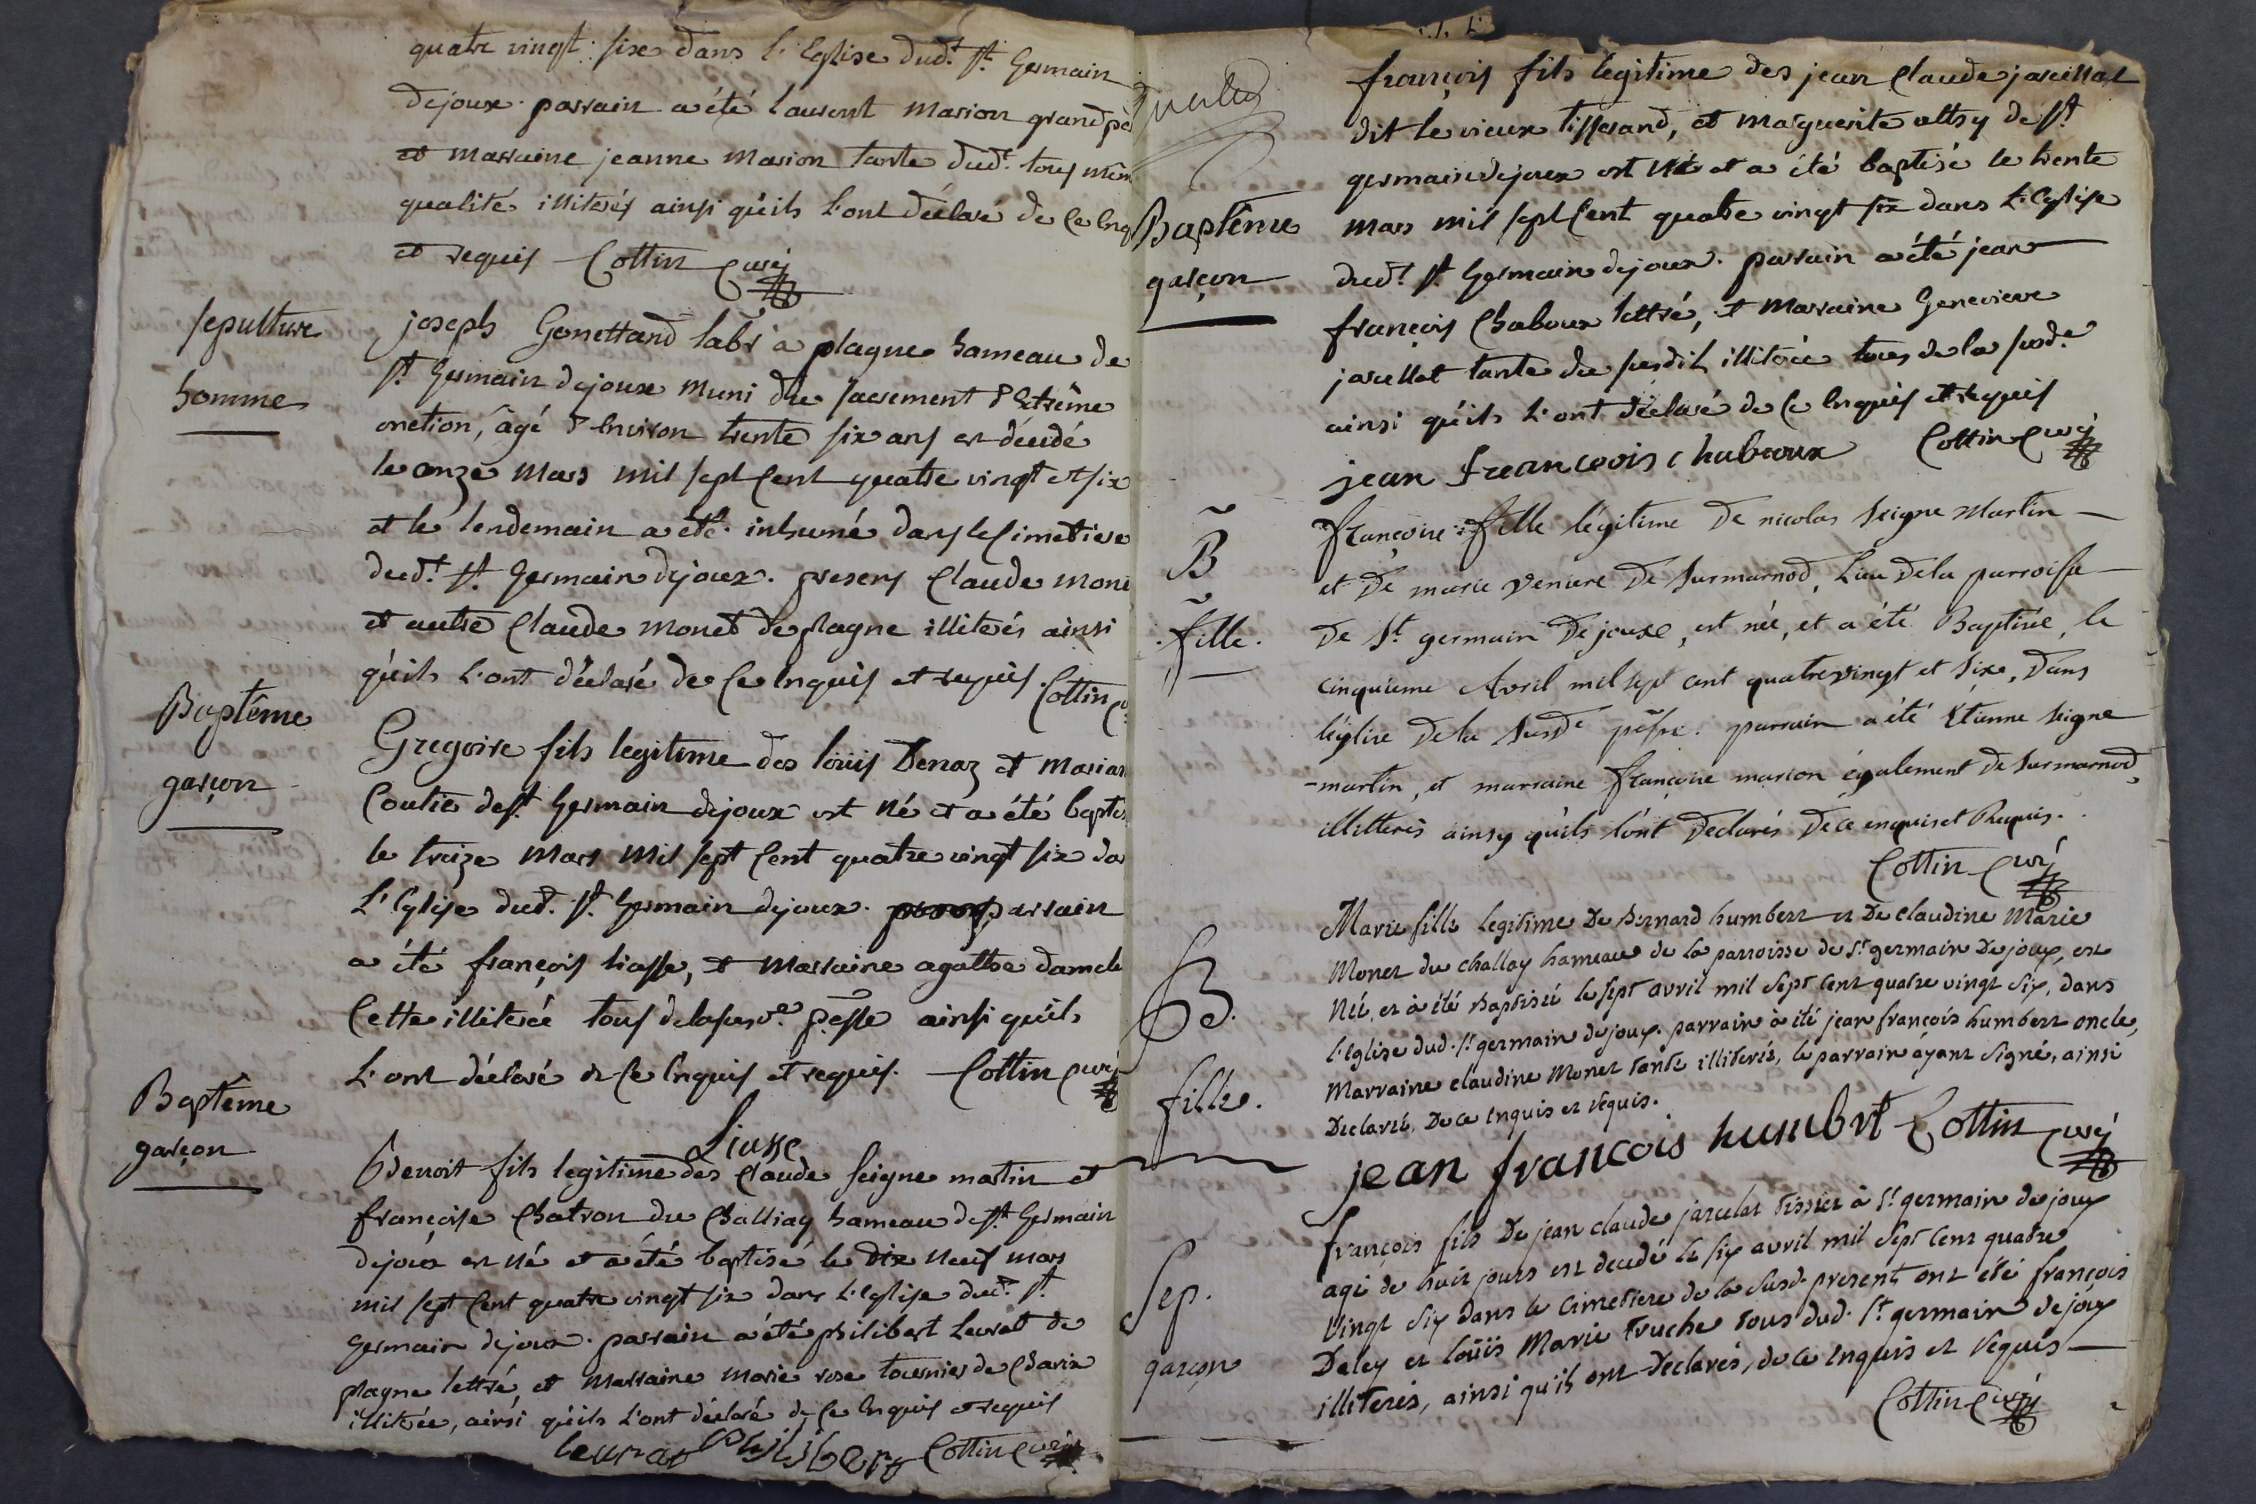 quatre vingt six dans l'Eglise dud.t S.t Germain
dejoux. parrain a été laurent marion grand pè
et marraine jeanne marion tante dud.t tous mêm
qualité illiterés ainsi qu'ils l'ont déclaré de ce enq
et requis Cottin curé
sepulture
homme
joseph Gonettand lab.r à plagne hameau de
S.t Germain dejoux muni du sacrement d'Extrême
onction, âgé d'environ trente six ans est décédé
le onze mars mil sept cent quatre vingt et six
et le lendemain a été inhumé dans le cimetiere
dud.t S.t Germain dejoux. presens Claude mone
et autre Claude monet de plagne illiterés ainsi
qu'ils l'ont déclaré de ce enquis et requis. Cottin c
Baptême
garçon
Gregoire fils legitime des loüis Denaz et marian
Coutie de S.t Germain dejoux est né et a été baptis
le treize mars mil sept cent quatre vingt six da
L'Eglise dud.t S.t Germain dejoux. parrain
a été françois liasse, et marraine agathe damele
Cette illiterée tous de la susd.e p.esse ainsi qu'ils
l'ont déclaré de ce enquis et requis. Cottin curé
Liasse
Baptême
garçon
Benoit fils legitime des Claude seigne martin et
françoise Chatron du Challiay hameau de S.t Germain
dejoux est né et a été baptisé le dix neuf mars
mil sept cent quatre vingt six dans L'Eglise dud.t S.t
Germain dejoux. parrain a été philibert levrat de
plagne lettré, et marraine marie rose tournier de Charix
illiterée, ainsi qu'ils l'ont déclaré de ce enquis et requis
levrat Philibert Cottin curé
Baptême
garçon
françois fils legitime des jean Claude jarcellat
dit le vieux tisserand, et marguerite de S.t
germain dejoux est né et a été baptisé le trente
mars mil sept cent quatre vingt six dans L'Eglise
dud.t S.t Germain dejoux. parrain a été jean
françois Chaboux lettré, et marraine Genevieve
jarcellat tante du susdit, illiterée tous de la susd.e
ainsi qu'ils l'ont déclaré de ce enquis et requis
jean francois chaboux Cottin curé
B
fille.
françoise fille légitime de nicolas seigne martin
et de marie veniere de surmarnod, Lieu de la parroisse
de S.t germain de joux, est née, et a été Baptisée, le
cinquieme Avril mil sept cent quatrevingt et six, dans
l'église de la susd.e p.esse. parrain a été Etienne seigne
-martin, et marraine françoise marion également de surmarnod,
illitterés ainsy qu'ils l'ont déclarés de ce enquis et Requis.
Cottin curé
B.
fille.
Marie fille legitime De Bernard humbert et De claudine Marie
Monet du challay hameau de la parroisse de S.t germain Dejoux, est
Née, et à été Baptisée le sept avril mil sept cent quatre vingt six, dans
l'Eglise dud. S.t germain dejoux. parrain à été jean françois humbert oncle,
Marraine claudine Monet tante illiterés, le parrain ayant signé, ainsi
Declarés, De ce enquis et requis.
jean francois humbert Cottin curé
Sep.
garçon
françois fils De jean claude jarcelat tissier à S.t germain de joux
agé de huit jours est decedé le six avril mil sept cent quatre
Vingt six dans le cimetiere de la susd. presents ont été françois
Daley et loüis Marie truche tous dud. S.t germain dejoux
illiterés, ainsi qu'ils ont Declarés, de ce enquis et requis
Cottin curé